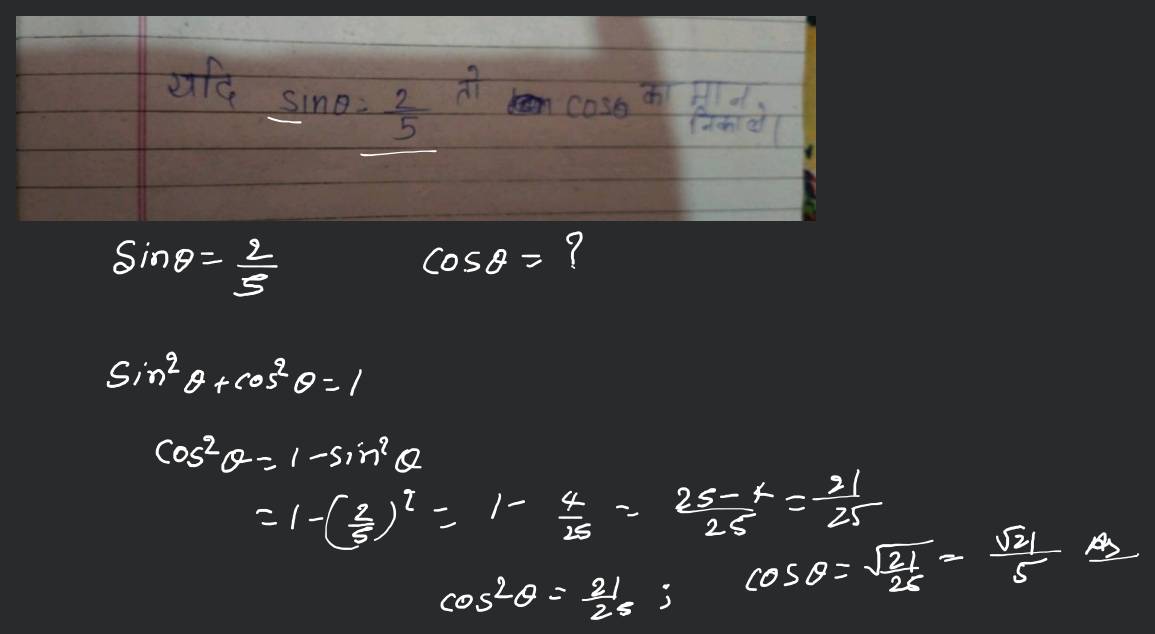 यदि sinθ = 2/5 तो cosθ का मान निकालो।
Sinθ = 2/5 cosθ = ?
Sin²θ + cos²θ = 1
Cos²θ = 1 - sin²θ
= 1 - (2/5)² = 1 - 4/25 = 25-4/25 = 21/25
cos²θ = 21/25 ; cosθ = √21/25 = √21/5 Ans